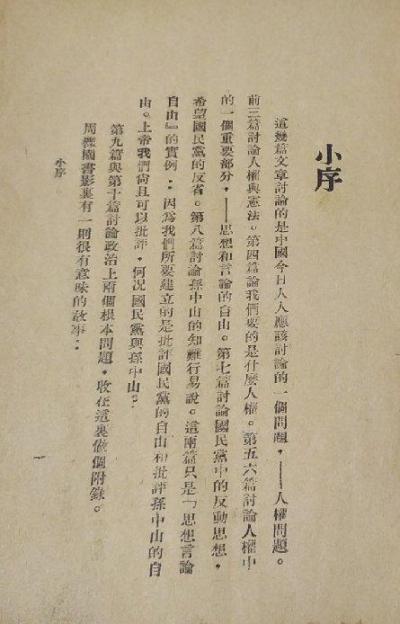 小序
這幾篇文章討論的是中國今日人人應該討論的一個問題，——人權問題。
前三篇討論人權與憲法。第四篇論我們要的是什麼人權。第五六篇討論人權中
的一個重要部分，——思想和言論的自由。第七篇討論國民黨中的反動思想，
希望國民黨的反省。第八篇討論孫中山的知難行易說。這兩篇只是「思想言論
自由」的實例：因為我們所要建立的是批評國民黨的自由和批評孫中山的自
由。上帝我們尙且可以批評，何況國民黨與孫中山？
第九篇與第十篇討論政治上兩個根本問題，收在這裏做個附錄。
周櫟園書影裏有一則很有意味的故事：
小序
一